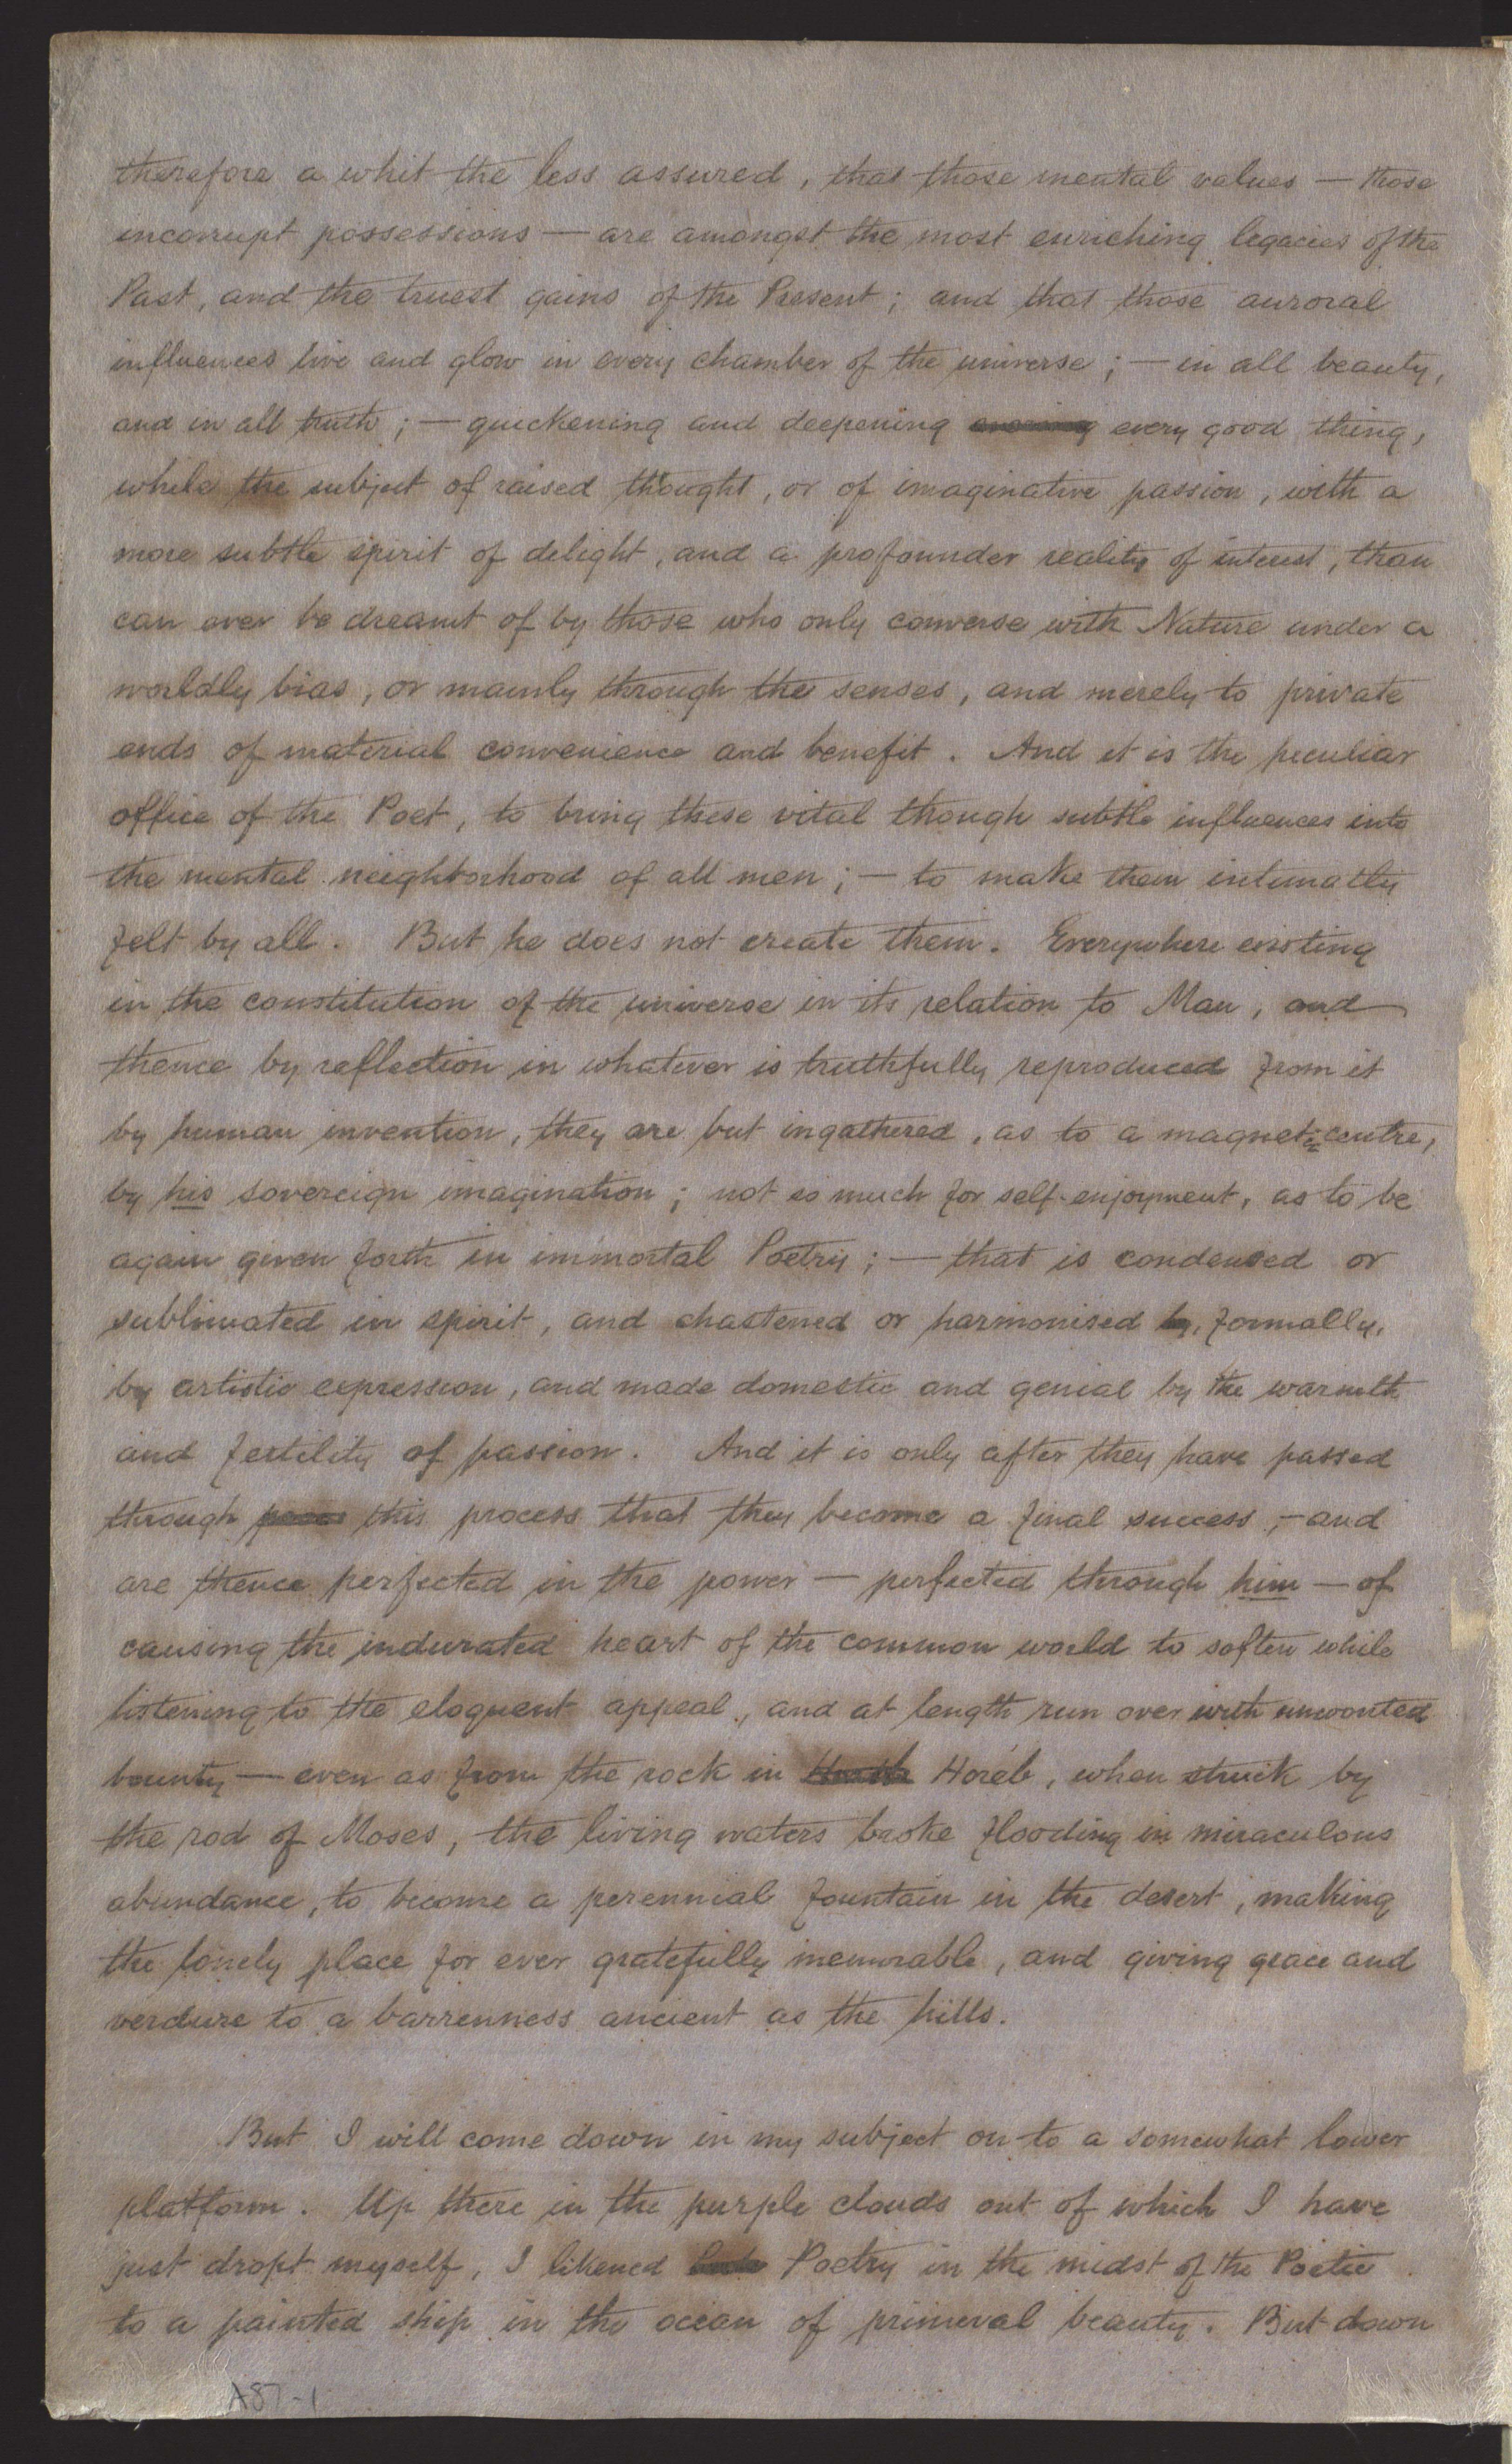 therefore a whit the less assured, that those mental values — those
incorrupt possessions — are amongst the most enriching legacies of the
Past, and the truest gains of the Present; and that those auroral
influences live and glow in every chamber of the universe; — in all beauty,
and in all truth; — quickening and deepening every good thing,
while the subject of raised thought, or of imaginative passion, with a
more subtle spirit of delight, and a profounder reality of interest, than
can ever be dreamt of by those who only converse with Nature under a
worldly bias, or mainly through the senses, and merely to private
ends of material convenience and benefit. And it is the peculiar
office of the Poet, to bring these vital though subtle influences into
the mental neighborhood of all men; — to make them intimatly
felt by all. But he does not create them. Everywhere existing
in the constitution of the universe in its relation to Man, and
thence by reflection in whatever is truthfully reproduced from it
by human invention, they are but ingathered, as to a magnetic centre,
by his sovereign imagination; not so much for self-enjoyment, as to be
again given forth in immortal Poetry; — that is condensed or
sublimated in spirit, and chastened or harmonised by, formally,
by artistic expression, and made domestic and genial by the warmth
and fertility of passion. And it is only after they have passed
through this process that they become a final success, — and
are thence perfected in the power — perfected through him — of
causing the indurated heart of the common world to soften while
listening to the eloquent appeal, and at length run over with unwonted
bounty — even as from the rock in Horeb, when struck by
the rod of Moses, the living waters broke flooding in miraculous
abundance, to become a perennial fountain in the desert, making
the lonely place for ever gratefully memorable, and giving grace and
verdure to a barrenness ancient as the hills.
But I will come down in my subject on to a somewhat lower
platform. Up there in the purple clouds out of which I have
just dropt myself, I likened Poetry in the midst of the Poetic
to a painted ship in the ocean of primeval beauty. But down
A87-1